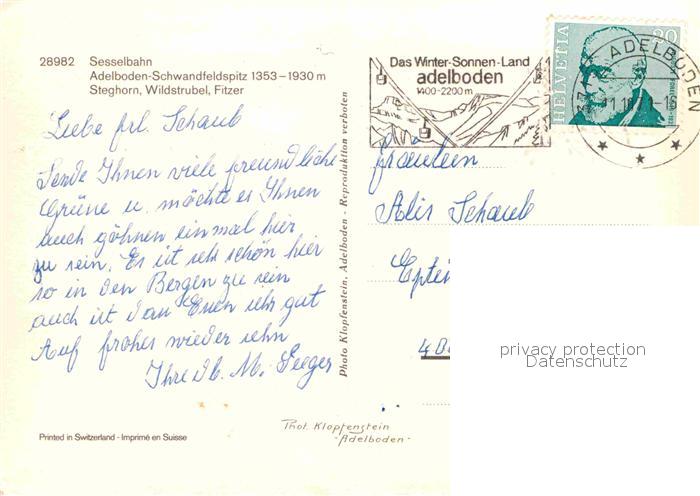 28982 Sesselbahn
Adelboden-Schwandfeldspitz 1353–1930 m
Steghorn, Wildstrubel, Fitzer
Liebe frl. Schaub
Sende Ihnen viele freundliche
Grüne u. möchte es Ihnen
auch göhnen einmal hier
zu sein. Es ist sehr schön hier
so in den Bergen zu sein
auch ist das Essen sehr gut
Auf frohes wieder sehn
Ihre M. Seeger
Printed in Switzerland - Imprimé en Suisse
Photo Klopfenstein, Adelboden - Reproduktion verboten
Phot. Klopfenstein
-Adelboden-
Das Winter-Sonnen-Land
adelboden
1400-2200 m
HELVETIA
20
ADELBODEN
Fräulein
Alis Schaub
privacy protection
Datenschutz